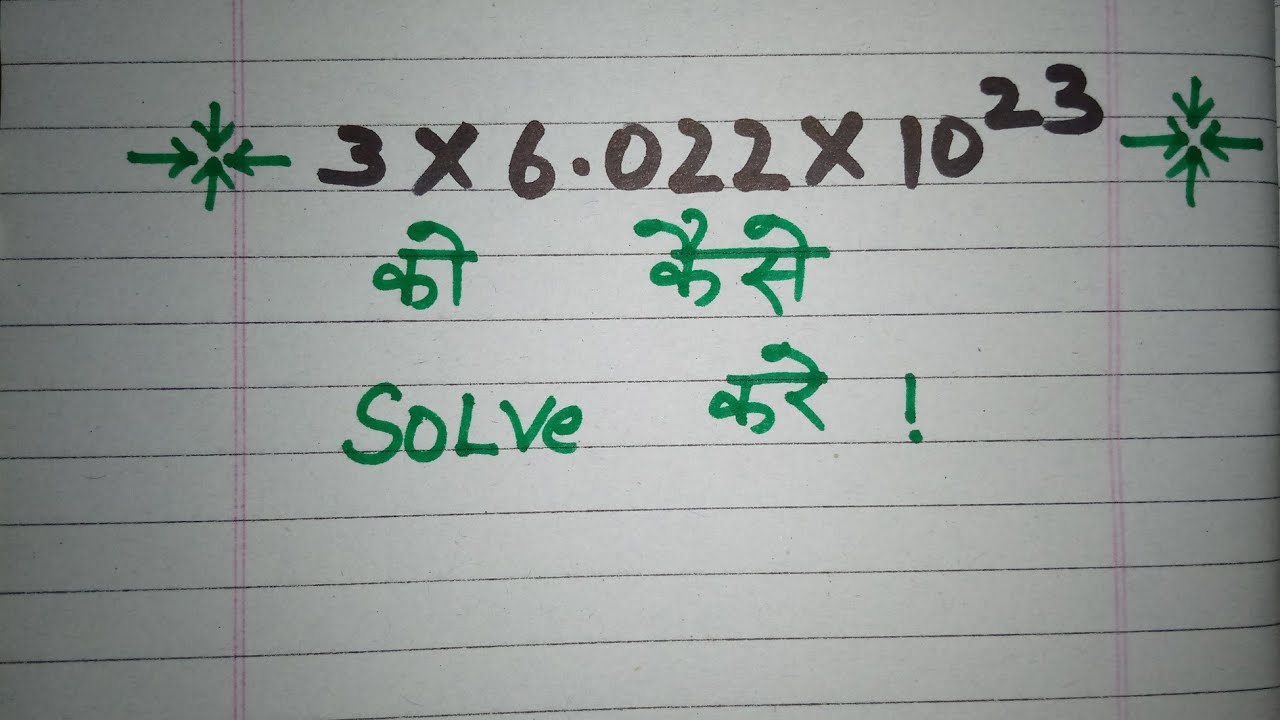 3 X 6.022 X 10²³
को कैसे
SOLVe करे !